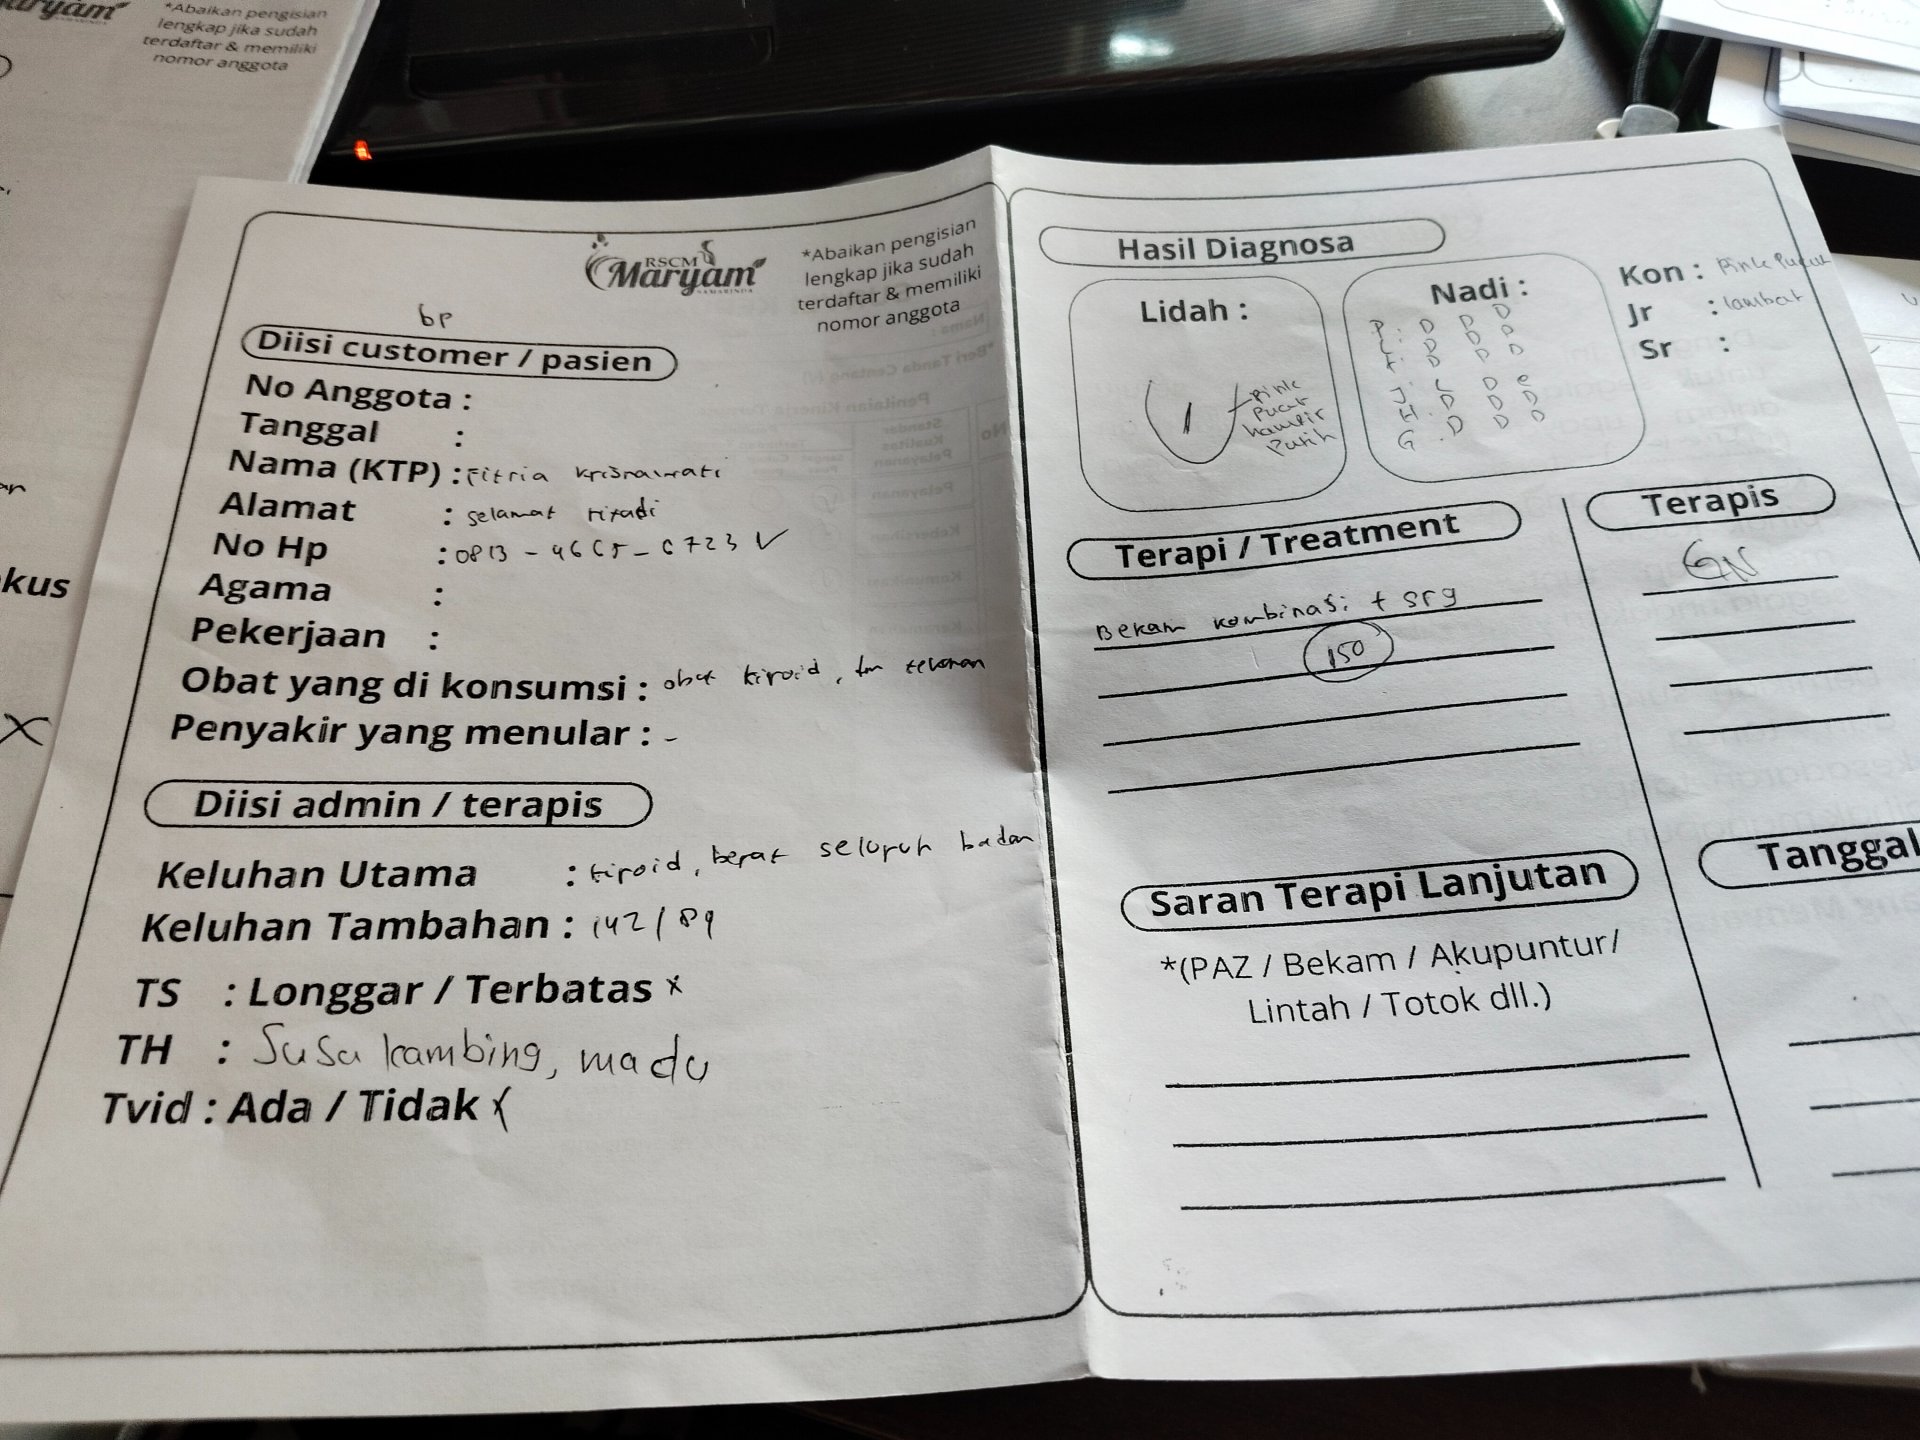 *Abaikan pengisian
lengkap jika sudah
terdaftar & memiliki
nomor anggota
kus
RSCM
Maryam
SAMARINDA
*Abaikan pengisian
lengkap jika sudah
terdaftar & memiliki
nomor anggota
bp
Diisi customer / pasien
No Anggota :
Tanggal :
Nama (KTP) : Fitria Krisnawati
Alamat : selamat riyadi
No Hp : 0813 -
Agama :
Pekerjaan :
Obat yang di konsumsi : obat tiroid,
Penyakir yang menular : -
Diisi admin / terapis
Keluhan Utama : tiroid, berat seluruh badan
Keluhan Tambahan : 142/89
TS : Longgar / Terbatas x
TH : Susu kambing, madu
Tvid : Ada / Tidak x
Hasil Diagnosa
Lidah :
Pink
Pucat
hampir
Putih
Nadi :
Kon : Pink Pucat
Jr : lambat
Sr :
Terapi / Treatment
Bekam kombinasi + srg
150
Terapis
GN
Saran Terapi Lanjutan
*(PAZ / Bekam / Akupuntur/
Lintah / Totok dll.)
Tanggal